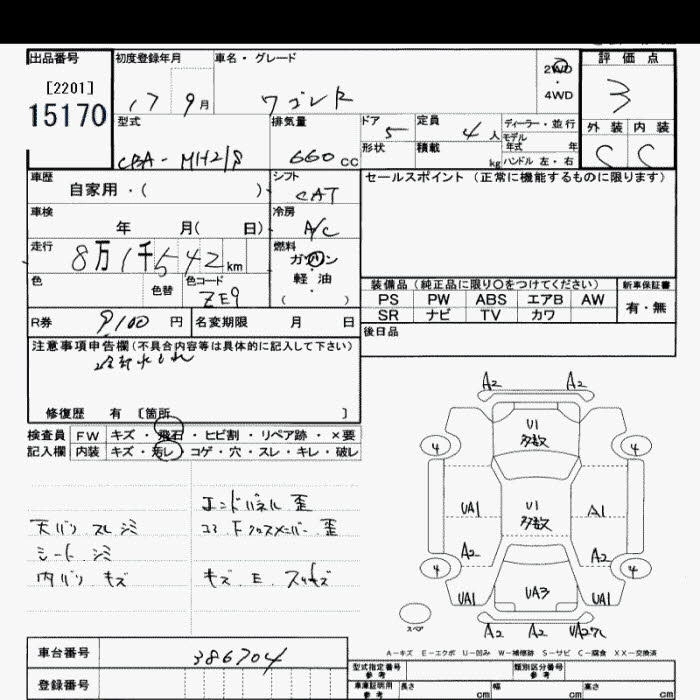 出品番号 初度登録年月 車名・グレード 2WD・4WD 評価点
[2201]
15170 17 9月 ワゴンR 3
型式 排気量 ドア 定員 ディーラー・並行 外装 内装
CBA-MH21S 660cc 5 4人 モデル年式 年 C C
形状 積載 kg ハンドル 左・右
車歴 シフト セールスポイント (正常に機能するものに限ります)
自家用・( ) CAT
車検 冷房
年 月( 日) A/C
走行 燃料
8万1千542km ガソリン
色 色替 色コード 軽油
ZE9 ( )
装備品 (純正品に限り○をつけてください) 新車保証書
PS PW ABS エアB AW 有・無
SR ナビ TV カワ
R券 9,100円 名変期限 月 日
後日品
注意事項申告欄 (不具合内容等は具体的に記入して下さい)
冷却水もれ
修復歴 有 〔箇所 〕
検査員 FW キズ・飛石・ヒビ割・リペア跡・×要
記入欄 内装 キズ・汚レ・コゲ・穴・スレ・キレ・破レ
エンドパネル 歪
天バリ スレ シミ コア Fクロスメンバー 歪
シート シミ
内バリ キズ キズ.E.スリキズ
A2 A2
U1
多数
4 4
UA1 U1 A1
多数
A2 A2
4 4
UA1 UA3 UA1
スペア
A2 A2
A-キズ E-エクボ U-凹み W-補修跡 S-サビ C-腐食 XX-交換済
車台番号 386704
登録番号
型式指定番号 類別区分番号
参考 参考
車庫証明用 長さ 幅 高さ
参考 cm cm cm